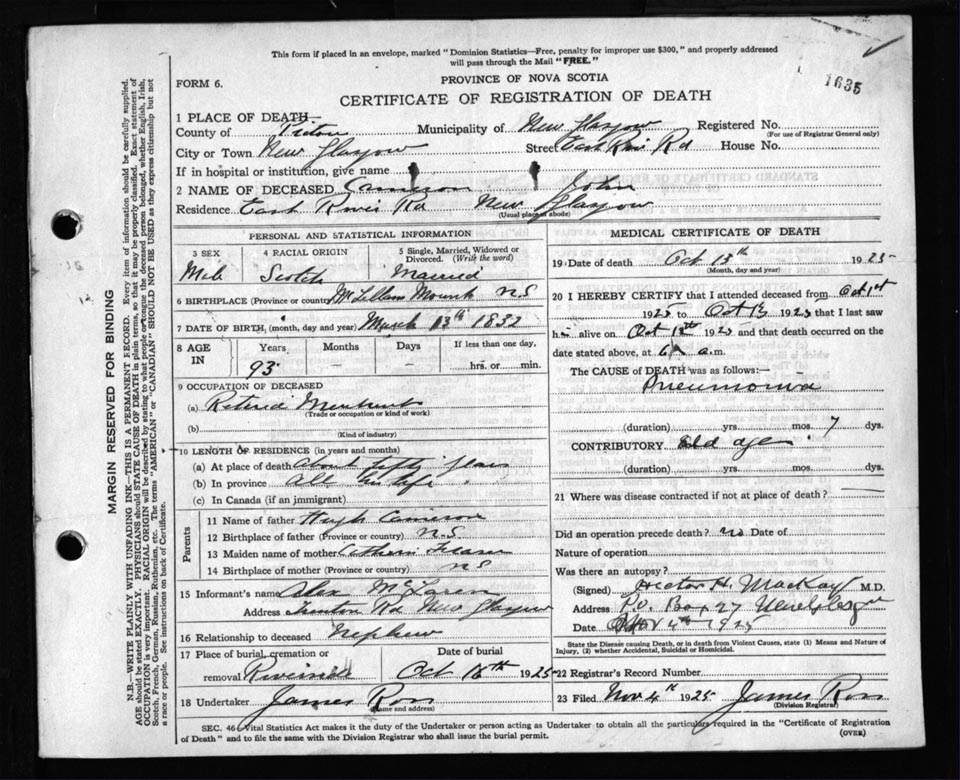 This form if placed in an envelope, marked "Dominion Statistics—Free, penalty for improper use $300," and properly addressed
will pass through the Mail "FREE."
1635
FORM 6.
PROVINCE OF NOVA SCOTIA
CERTIFICATE OF REGISTRATION OF DEATH
1 PLACE OF DEATH—
County of Pictou Municipality of New Glasgow Registered No.
(For use of Registrar General only)
City or Town New Glasgow Street East River Rd House No.
If in hospital or institution, give name
2 NAME OF DECEASED Cameron John
Residence East River Rd New Glasgow
(Usual place of abode)
PERSONAL AND STATISTICAL INFORMATION
3 SEX
4 RACIAL ORIGIN
5 Single, Married, Widowed or Divorced. (Write the word)
Scotch Married
6 BIRTHPLACE (Province or country) McLellans Mount N S
7 DATE OF BIRTH, (month, day and year) March 13th 1832
8 AGE IN
Years Months Days If less than one day,
93 hrs. or min.
9 OCCUPATION OF DECEASED
(a) Retired Merchant
(Trade or occupation or kind of work)
(b)
(Kind of industry)
10 LENGTH OF RESIDENCE (in years and months)
(a) At place of death about fifty years
(b) In province all his life
(c) In Canada (if an immigrant)
Parents
11 Name of father Hugh Cameron
12 Birthplace of father (Province or country) N.S
13 Maiden name of mother Fraser
14 Birthplace of mother (Province or country) N S
15 Informant's name Alex McLaren
Address Rd New Glasgow
16 Relationship to deceased Nephew
17 Place of burial, cremation or removal Date of burial
Riverside Oct 16th 1925
18 Undertaker James Ross
(Name and address)
MEDICAL CERTIFICATE OF DEATH
19 Date of death Oct 13th 1925
(Month, day and year)
20 I HEREBY CERTIFY that I attended deceased from Oct 1st
1925 to Oct 13 1925 that I last saw
him alive on Oct 1925 and that death occurred on
date stated above, at 6 a.m.
The CAUSE of DEATH was as follows:
Pneumonia
(duration) yrs. mos. 7 dys.
CONTRIBUTORY old age
(duration) yrs. mos. dys.
21 Where was disease contracted if not at place of death?
Did an operation precede death? no Date of
Nature of operation
Was there an autopsy?
(Signed) Victor H. MacKay M.D.
Address P.O. Box 27 New Glasgow
Date Nov 4th 1925
State the Disease causing Death, or in death from Violent Causes, state (1) Means and Nature of
Injury, (2) whether Accidental, Suicidal or Homicidal.
22 Registrar's Record Number
23 Filed Nov 4th 1925 James Ross
(Division Registrar)
SEC. 46—Vital Statistics Act makes it the duty of the Undertaker or person acting as Undertaker to obtain all the particulars required in the "Certificate of Registration
of Death" and to file the same with the Division Registrar who shall issue the burial permit.
(OVER)
MARGIN RESERVED FOR BINDING
N.B.—WRITE PLAINLY WITH UNFADING INK—THIS IS A PERMANENT RECORD. Every item of information should be carefully supplied.
AGE should be stated EXACTLY. PHYSICIANS should STATE CAUSE OF DEATH in plain terms, so that it may be properly classified. Exact statement of
OCCUPATION is very important. RACIAL ORIGIN will be described by stating to what people or tongue the deceased person belonged, whether English, Irish,
Scotch, French, German, Russian, Ruthenian, etc. The terms "AMERICAN" or "CANADIAN" SHOULD NOT BE USED as they express citizenship but not
a race or people. See instructions on back of Certificate.